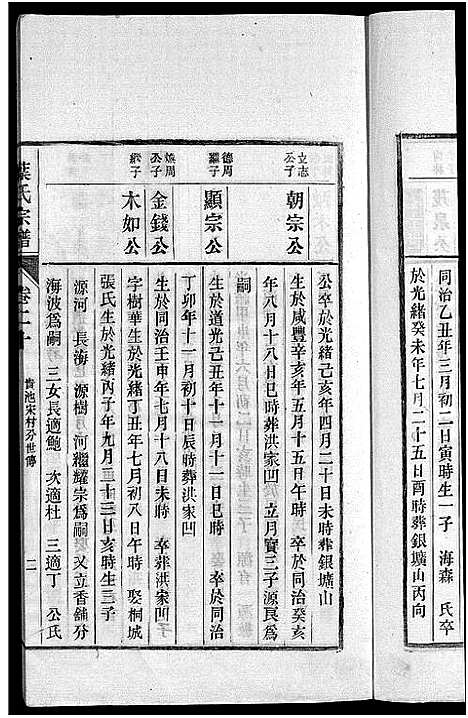 同治乙丑年三月初二日寅時生一子　海森　氏卒
於光緒癸未年七月二十五日酉時葬銀壙山丙向
公卒於光緒己亥年四月二十日未時葬銀壙山
立志公子
朝宗公
生於咸豐辛亥年五月十五日午時　卒於同治癸亥
年八月十八日巳時葬洪家凹　立月寶三子源良為
嗣
德周繼子
顯宗公
生於道光己丑年十一月十一日巳時　卒於同治
丁卯年十一月初十日辰時葬洪家凹
煥周公子
金錢公
生於同治壬申年七月十八日未時　卒葬洪家凹
繼子
木如公
字樹華生於光緒丁丑年七月初八日午時　娶桐城
張氏生於光緒丙子年九月二十三日亥時生三子
源河　長海　源樹　河繼耀宗為嗣　又立香舖分
海波為嗣　三女長適鮑　次適杜　三適丁　公氏
葉氏宗譜
卷二十
貴池宋村分世傳
二